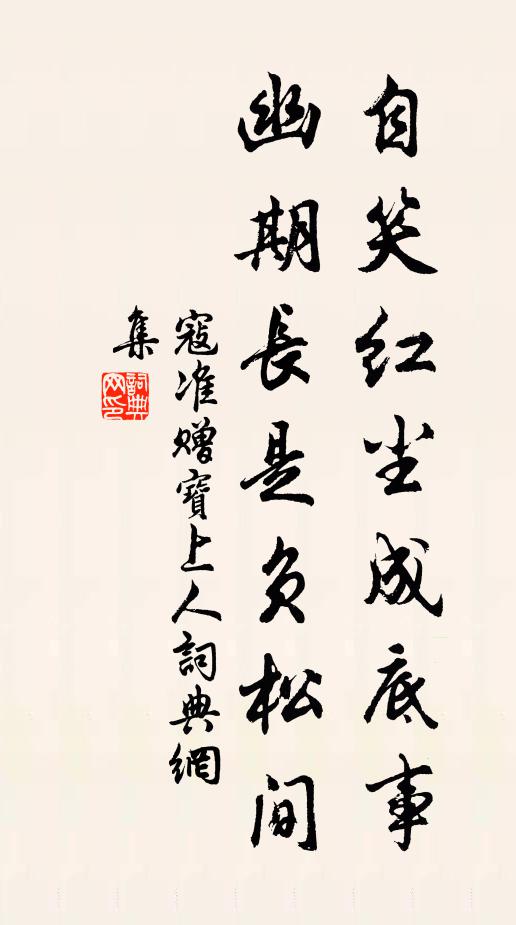 自笑红尘成底事
幽期長是负松间
寇准赠寶上人詞典網
集
詞典网印